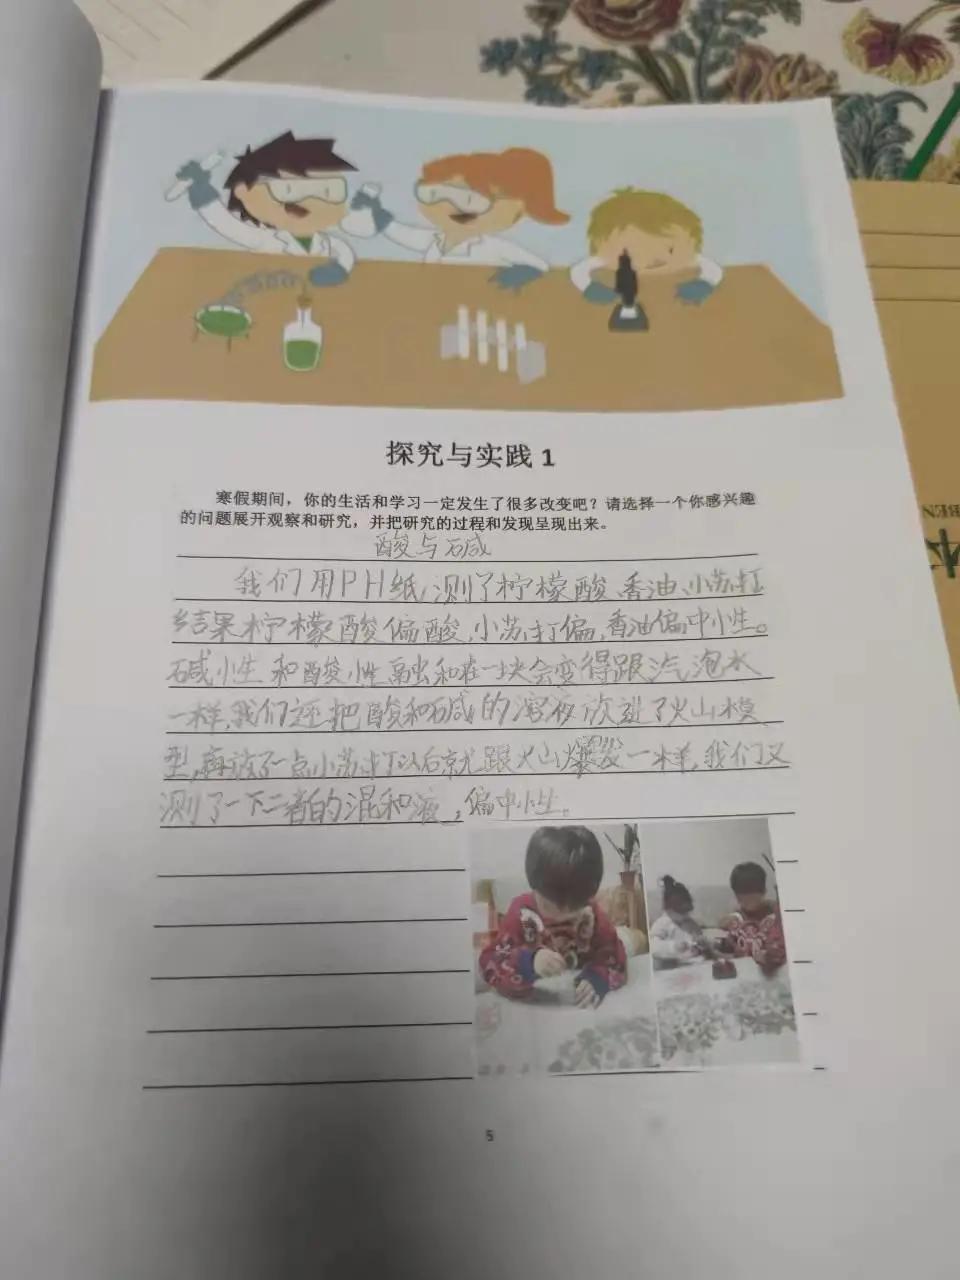 探究与实践 1
寒假期间，你的生活和学习一定发生了很多改变吧？请选择一个你感兴趣
的问题展开观察和研究，并把研究的过程和发现呈现出来。
酸与碱
我们用PH纸,测了柠檬酸、香油、小苏打
结果柠檬酸偏酸,小苏打偏,香油偏中小生。
碱小生和酸小性融和在一块会变得跟汽泡水
一样,我们还把酸和碱的溶液放进了火山模
型,再放了一点小苏打以后就跟火山爆发一样,我们又
测了一下二者的混和液,偏中性。
5
BEN